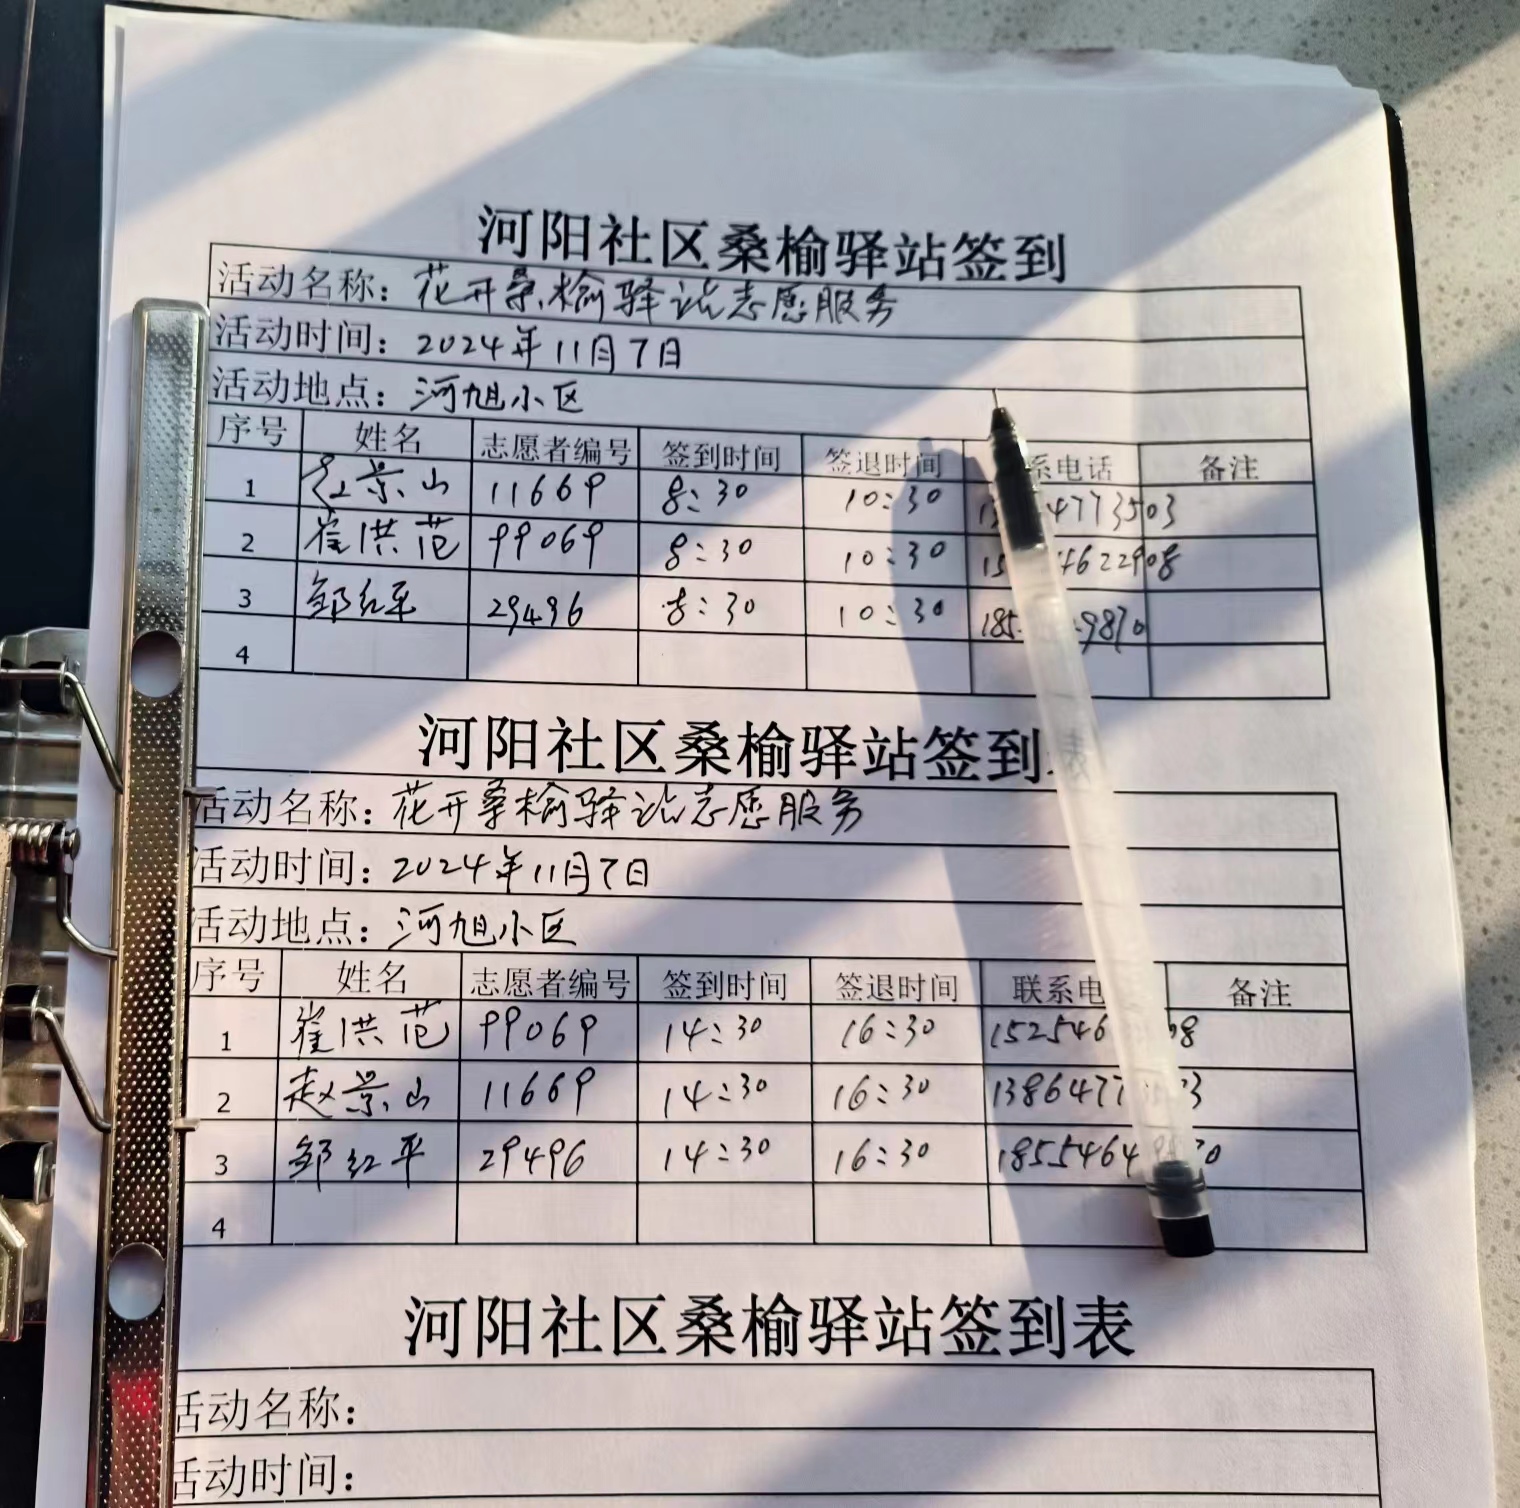 河阳社区桑榆驿站签到
活动名称：花开桑榆驿站志愿服务
活动时间：2024年11月7日
活动地点：河旭小区
序号 姓名 志愿者编号 签到时间 签退时间 系电话 备注
1 赵景山 11669 8:30 10:30
2 崔洪范 99069 8:30 10:30
3 邹红平 29496 8:30 10:30
4
河阳社区桑榆驿站签到表
活动名称：花开桑榆驿站志愿服务
活动时间：2024年11月7日
活动地点：河旭小区
序号 姓名 志愿者编号 签到时间 签退时间 联系电 备注
1 崔洪范 99069 14:30 16:30
2 赵景山 11669 14:30 16:30
3 邹红平 29496 14:30 16:30
4
河阳社区桑榆驿站签到表
活动名称：
活动时间：